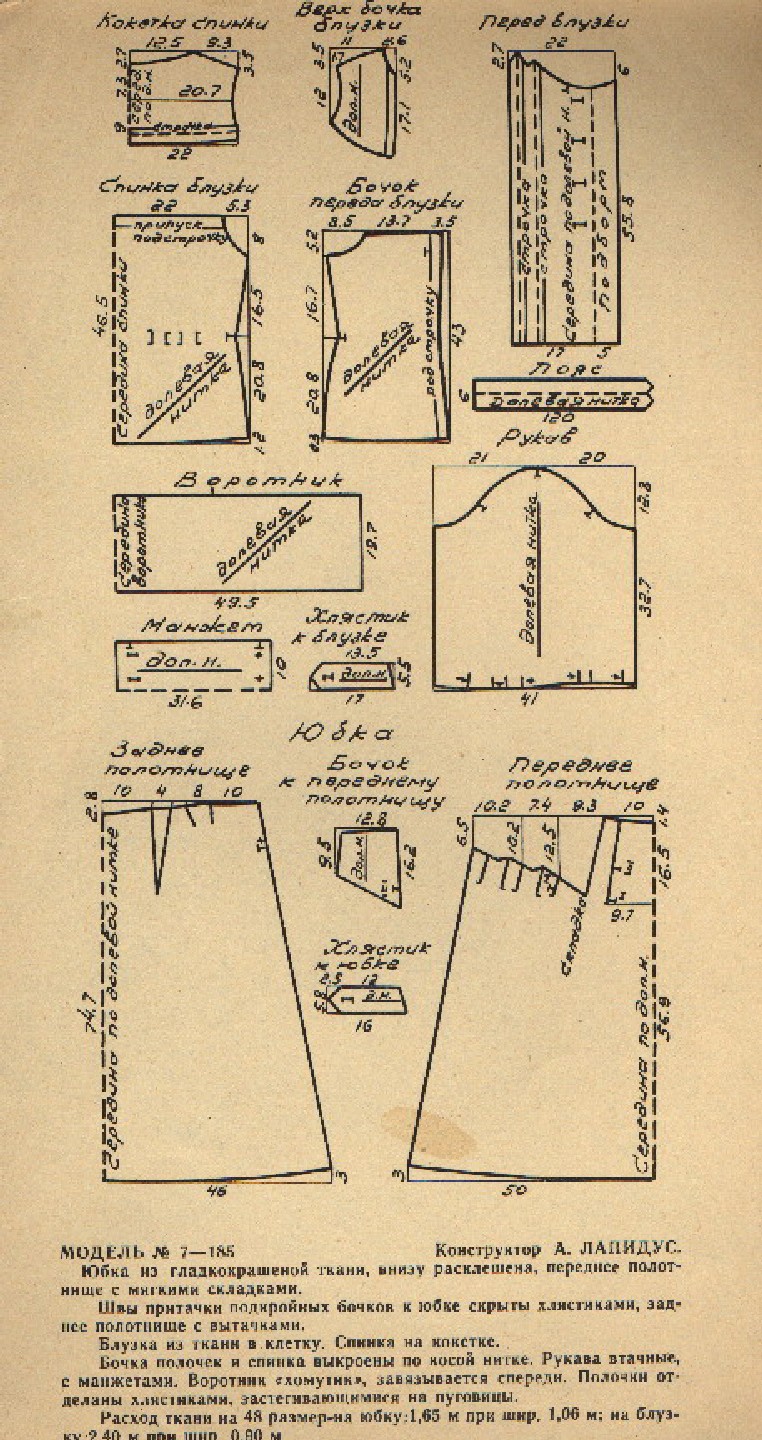 Кокетка спинки
12.5 9.3
2.7
3.5
7.3
9
20.7
строчка
22
Верх бочка
блузки
11 6.6
3.5
5.2
12
17.1
дол.н.
Перед блузки
22
2.7
6
строчка
строчка
Подборт
55.8
17 5
Спинка блузки
22 5.3
припуск
под строчку
8
46.5
Середина спинки
16.5
долевая
нитка
20.8
1.2
Бочок
переда блузки
8.5 13.7 3.5
5.2
16.7
20.8
долевая
нитка
под строчку
43
Пояс
6
Долевая нитка
120
Рукав
21 20
12.8
Долевая нитка
32.7
41
Воротник
Середина
воротника
долевая
нитка
19.7
49.5
Манжет
дол.н.
10
31.6
Хлястик
к блузке
13.5
дол.н.
5.5
17
Юбка
Заднее
полотнище
10 4 8 10
2.8
Середина по долевой нитке
74.7
46
3
Бочок
к переднему
полотнищу
12.8
9.5
дол.н.
16.2
Хлястик
к юбке
12
5.8
д.н.
16
Переднее
полотнище
10.2 7.4 9.3 10
1.4
6.5
10.2
12.5
16.5
9.7
складка
Середина по дол.н.
56.9
3
50
МОДЕЛЬ № 7—185 Конструктор А. ЛАПИДУС.
Юбка из гладкокрашеной ткани, внизу расклешена, переднее полот-
нище с мягкими складками.
Швы притачки подкройных бочков к юбке скрыты хлястиками, зад-
нее полотнище с вытачками.
Блузка из ткани в клетку. Спинка на кокетке.
Бочка полочек и спинка выкроены по косой нитке. Рукава втачные,
с манжетами. Воротник «хомутик», завязывается спереди. Полочки от-
деланы хлястиками, застегивающимися на пуговицы.
Расход ткани на 48 размер-на юбку:1,65 м при шир. 1,06 м; на блуз-
ку:2,40 м при шир. 0,90 м